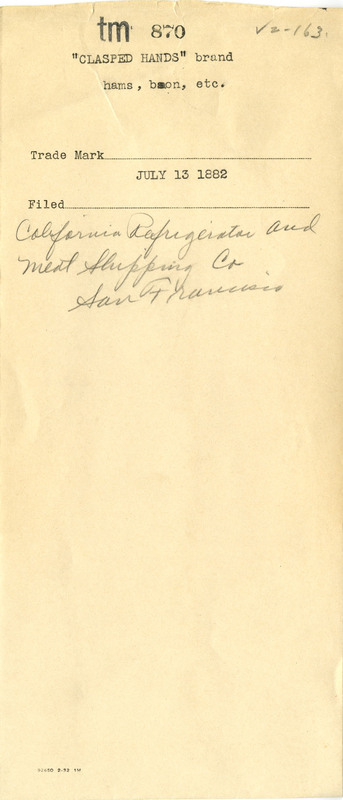 tm 870
V2-163.
"CLASPED HANDS" brand
hams, baon, etc.
Trade Mark
JULY 13 1882
Filed
California Refrigerator and
Meat Shipping Co
San Francisco
2-32 1M